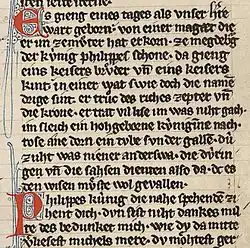 Es gieng eines tages als vnser h're
wart geborn · von einer maget die
er im ze můter hat erkorn · ze megdebg
der kúnig philippes schone · da gieng
eins keisers brůder vn̄ eins keisers
kint in einer wat swie doch die namē
drige sint · er trůc des riches zepter vn̄
die krone · er trat vil lise im was niht gach ·
im sleich ein hohgeborne kúnginne nach ·
rose ane dorn ein tvbe sunder gallē · dú
zuht was niener anderswa · die dúrin
gen vn̄ die sahsen dienten also da · dc es
den wisen mv̊ste wol gevallen ·
Philippes kúnig die nahe spehendē zi
hent dich · dvn sist niht dankes mil
te des bedunket mich · wie dv da mitte
verliesest michels mere · dv mohtest